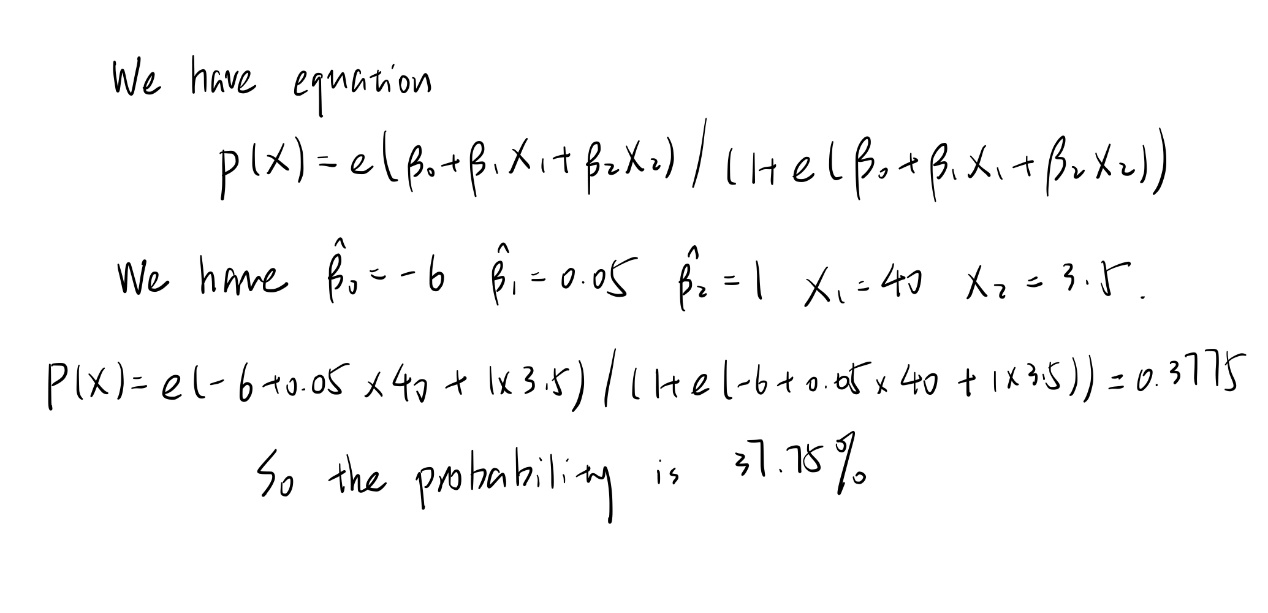 We have equation
p(X) = e(β₀+β₁X₁+β₂X₂)/(1+e(β₀+β₁X₁+β₂X₂))
We have β̂₀ = -6 β̂₁ = 0.05 β̂₂ = 1 X₁ = 40 X₂ = 3.5.
P(X) = e(-6+0.05×40+1×3.5)/(1+e(-6+0.05×40+1×3.5)) = 0.3775
So the probability is 37.75%